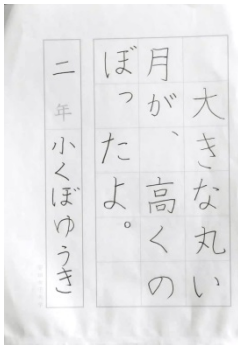 大きな丸い
月が、高くの
ぼったよ。
二年 小くぼゆうき